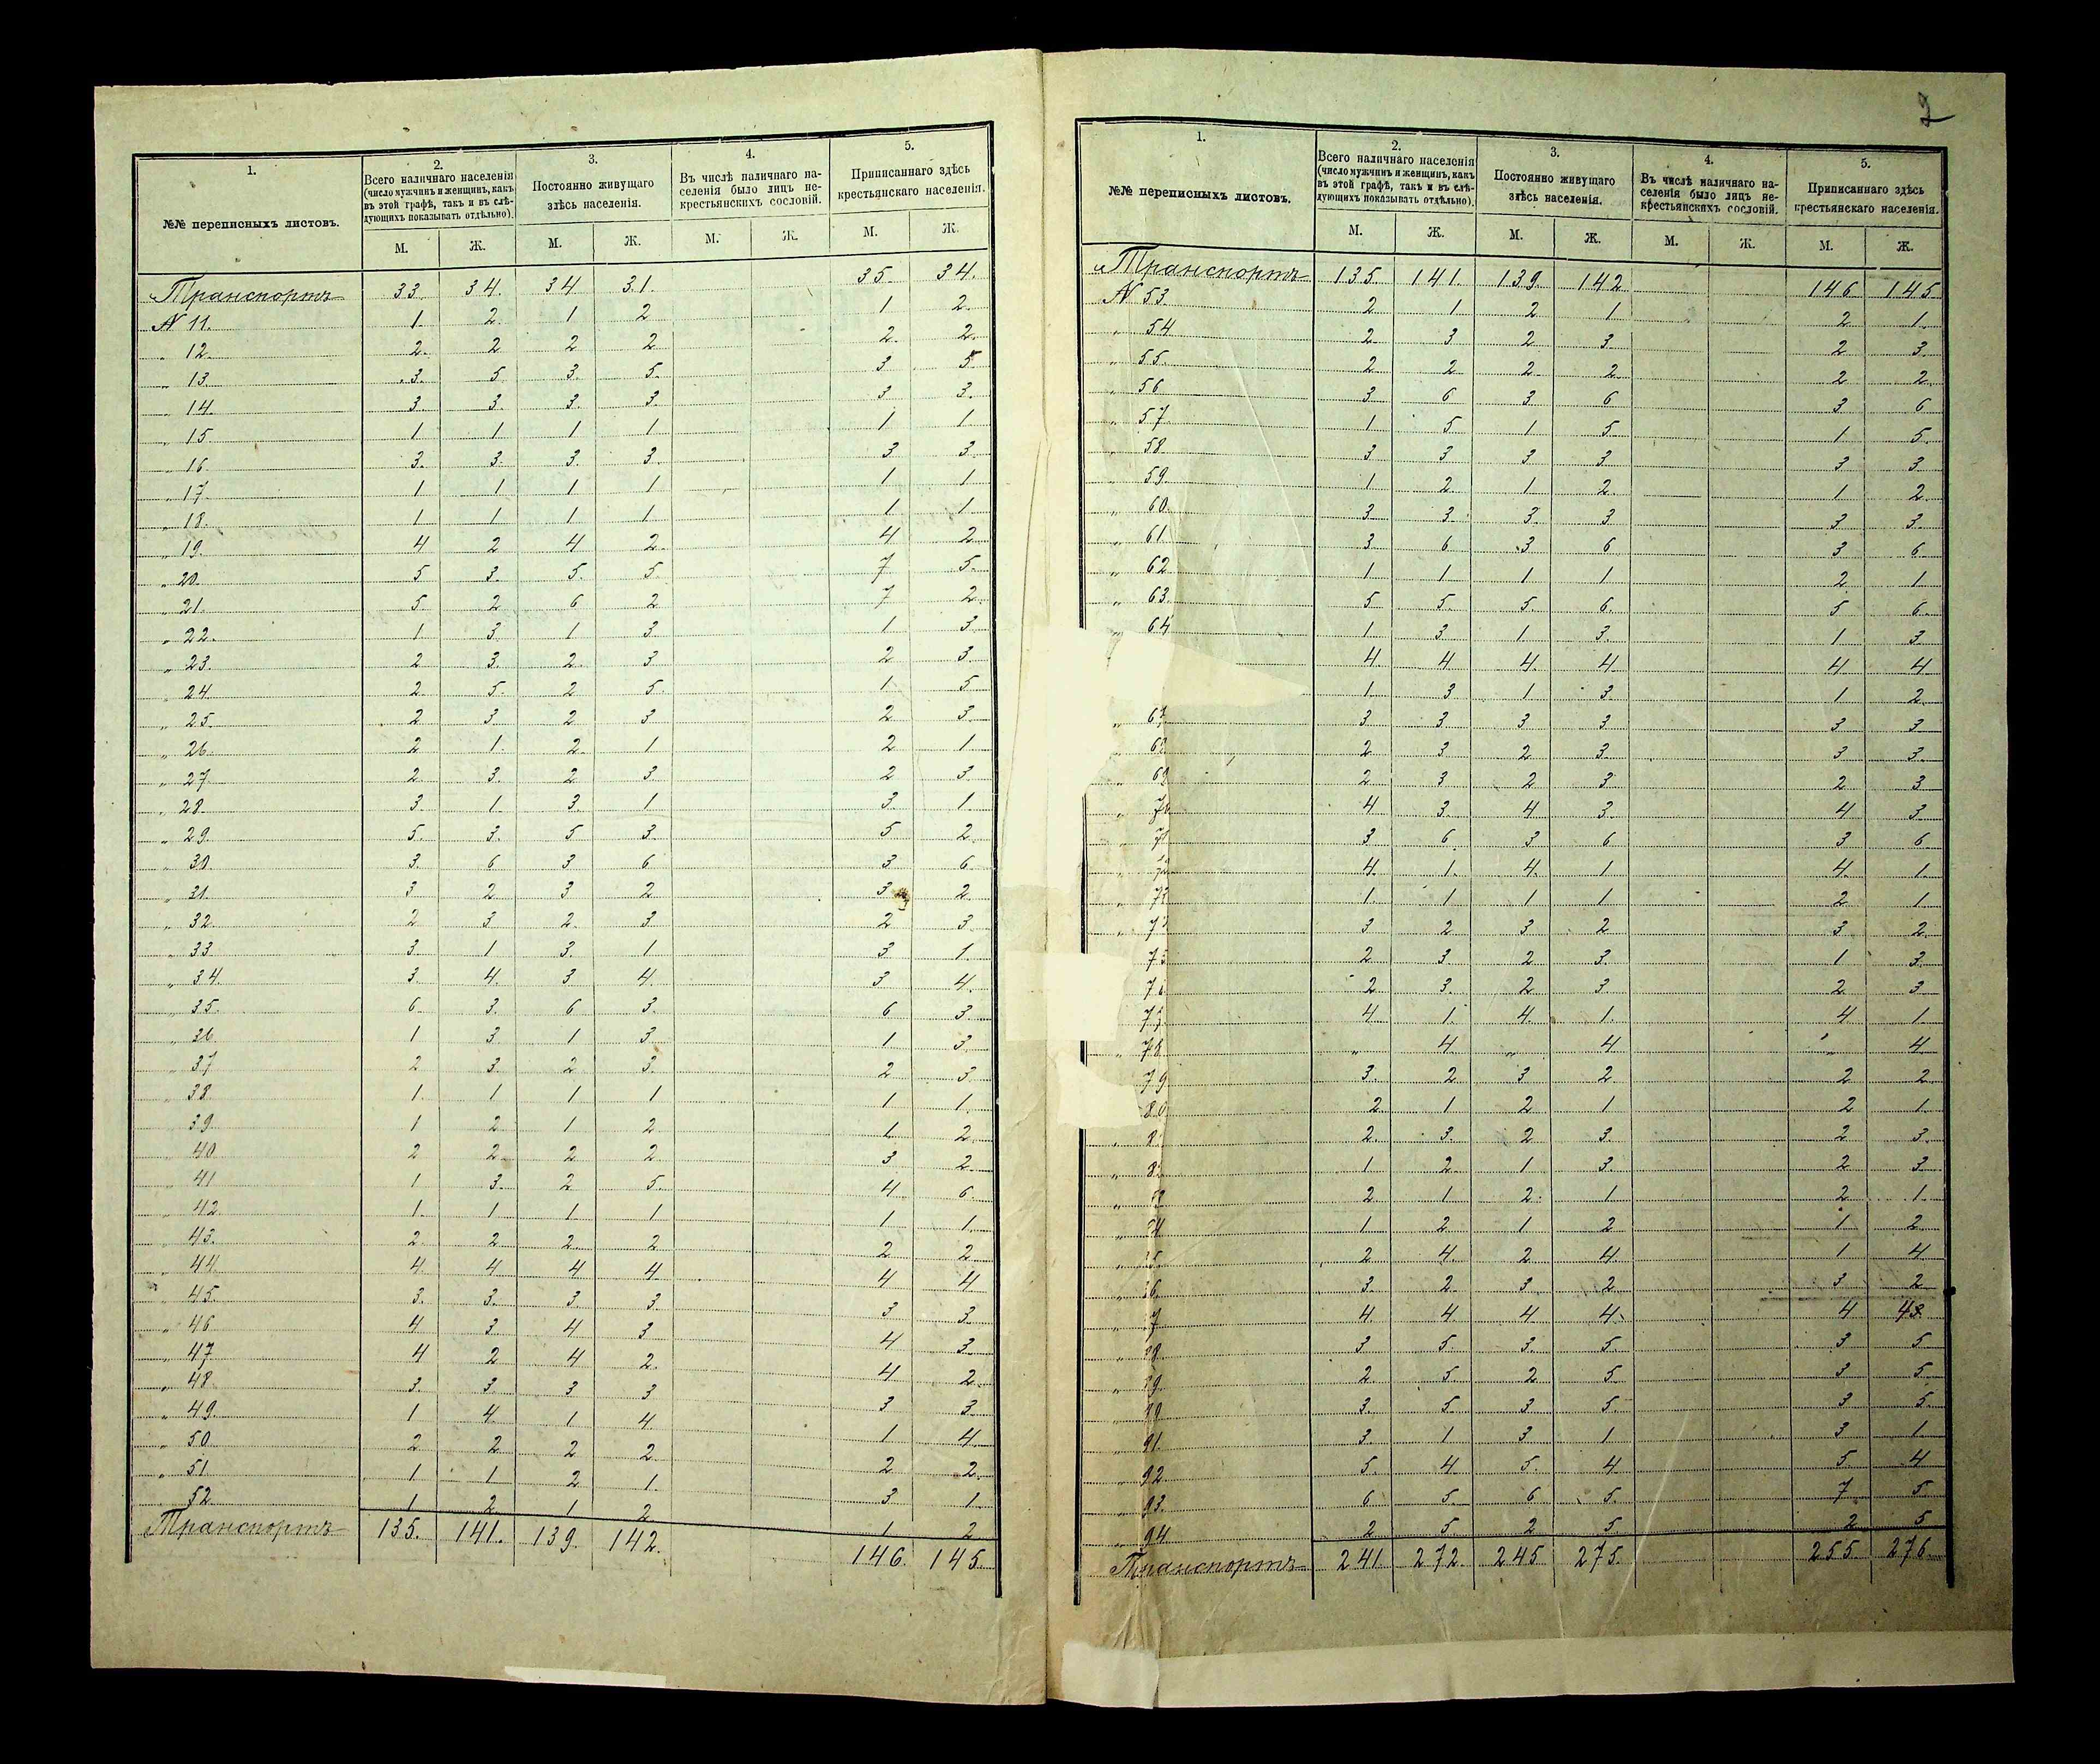 1.
2.
3.
4.
5.
№№ переписныхъ листовъ.
Всего наличнаго населенія
(число мужчинъ и женщинъ, какъ
въ этой графѣ, такъ и въ слѣ-
дующихъ показывать отдѣльно).
Постоянно живущаго
здѣсь населенія.
Въ числѣ наличнаго на-
селенія было лицъ не-
крестьянскихъ сословій.
Приписаннаго здѣсь
крестьянскаго населенія.
М. Ж. М. Ж. М. Ж. М. Ж.
Транспортъ 33. 34. 34 31. 35. 34.
№ 11. 1. 2. 1 2 1 2.
„ 12. 2. 2 2 2 2. 2.
„ 13. 3. 5. 3. 5. 3 5
„ 14. 3. 3. 3. 3. 3 3.
„ 15. 1 1 1 1 1 1.
„ 16. 3. 3. 3. 3. 3 3.
„ 17. 1 1 1 1 1 1
„ 18. 1 1 1 1 1 1
„ 19. 4 2 4 2. 4 2
„ 20. 5 3. 5. 5. 7 5.
„ 21. 5. 2 6 2 7 2.
„ 22. 1 3. 1 3. 1 3
„ 23. 2 3. 2. 3 2 3.
„ 24. 2. 5. 2 5. 1 5
„ 25. 2 3 2 3 2 3.
„ 26. 2 1. 2 1 2 1
„ 27. 2 3. 2 3 2 3.
„ 28. 3. 1. 3. 1 3. 1.
„ 29. 5. 3. 5 3. 5 2
„ 30. 3. 6 3 6 3 6
„ 31. 3 2 3 2 3 2.
„ 32. 2 3 2. 3. 2 3.
„ 33. 3. 1 3. 1 3 1.
„ 34. 3. 4. 3 4. 3 4.
„ 35. 6 3. 6 3. 6 3
„ 36. 1 3 1 3 1 3.
„ 37 2 3. 2 3. 2 3
„ 38. 1. 1 1 1 1 1.
„ 39. 1 2 1 2. 1 2.
„ 40 2 2. 2 2. 3 2
„ 41 1 3. 2 5. 4 6
„ 42. 1. 1 1 1 1 1.
„ 43. 2. 2 2 2 2 2.
„ 44 4. 4 4 4. 4 4
„ 45. 3. 3. 3. 3. 3 3.
„ 46 4 3. 4 3 4 3.
„ 47 4 2 4 2. 4 2.
„ 48. 3. 3. 3 3 3 3.
„ 49. 1 4. 1 4. 1 4.
„ 50. 2 2 2 2. 2 2.
„ 51 1 1 2 1. 3 1
„ 52. 1 2 1 2 1 2
Транспортъ 135. 141. 139. 142. 146. 145.
2
1.
2.
3.
4.
5.
№№ переписныхъ листовъ.
Всего наличнаго населенія
(число мужчинъ и женщинъ, какъ
въ этой графѣ, такъ и въ слѣ-
дующихъ показывать отдѣльно).
Постоянно живущаго
здѣсь населенія.
Въ числѣ наличнаго на-
селенія было лицъ не-
крестьянскихъ сословій.
Приписаннаго здѣсь
крестьянскаго населенія.
М. Ж. М. Ж. М. Ж. М. Ж.
Транспортъ 135. 141. 139. 142 146 145
№ 53. 2 1 2 1 2 1.
„ 54 2 3 2 3 2 3.
„ 55. 2 2 2 2 2 2.
„ 56 3 6 3 6 3 6
„ 57 1 5 1 5 1 5.
„ 58. 3 3 3 3 3 3
„ 59. 1 2 1 2 1 2
„ 60. 3 3. 3. 3 3 3.
„ 61. 3 6 3 6 3 6.
„ 62 1 1 1 1 2 1
„ 63. 5 5. 5. 6. 5 6.
„ 64 1 3 1 3. 1 3
4. 4 4. 4 4 4
1. 3 1 3. 1 2
„ 67 3 3 3 3 3 3
„ 68 2 3 2 3. 3 3.
„ 69 2 3 2 3 2 3
„ 70 4 3. 4 3. 4 3
„ 71 3 6. 3 6 3 6.
„ 72 4. 1. 4. 1 4. 1.
„ 73 1. 1 1 1 2 1
„ 7 3 2 3 2 3 2.
75 2. 3 2 3. 1 3.
76 2 3. 2 3. 2 3
7 4 1. 4. 1. 4 1.
„ 78 „ 4 „ 4 „ 4
79 3. 2 3 2 2 2
80 2 1 2 1 2 1.
„ 8 2. 3. 2 3. 2 3.
„ 8 1 2. 1 3. 2 3
„ 3 2 1 2. 1 2. 1.
„ 4. 1 2 1 2 1 2
5. 2 4. 2 4. 1 4
„ 6. 3. 2. 3. 2 3 2
„ 7 4. 4 4 4. 4 43.
„ 8. 3 5. 3. 5. 3 5.
„ 9. 2. 5. 2 5. 3 5.
3. 5 3 5 3 5.
„ 91. 3. 1 3 1 3 1.
„ 92. 5. 4 5. 4 5. 4
„ 93. 6 5. 6 5. 7 5
„ 94. 2 5. 2 5. 2 5
Транспортъ 241 272. 245 275. 255. 276.